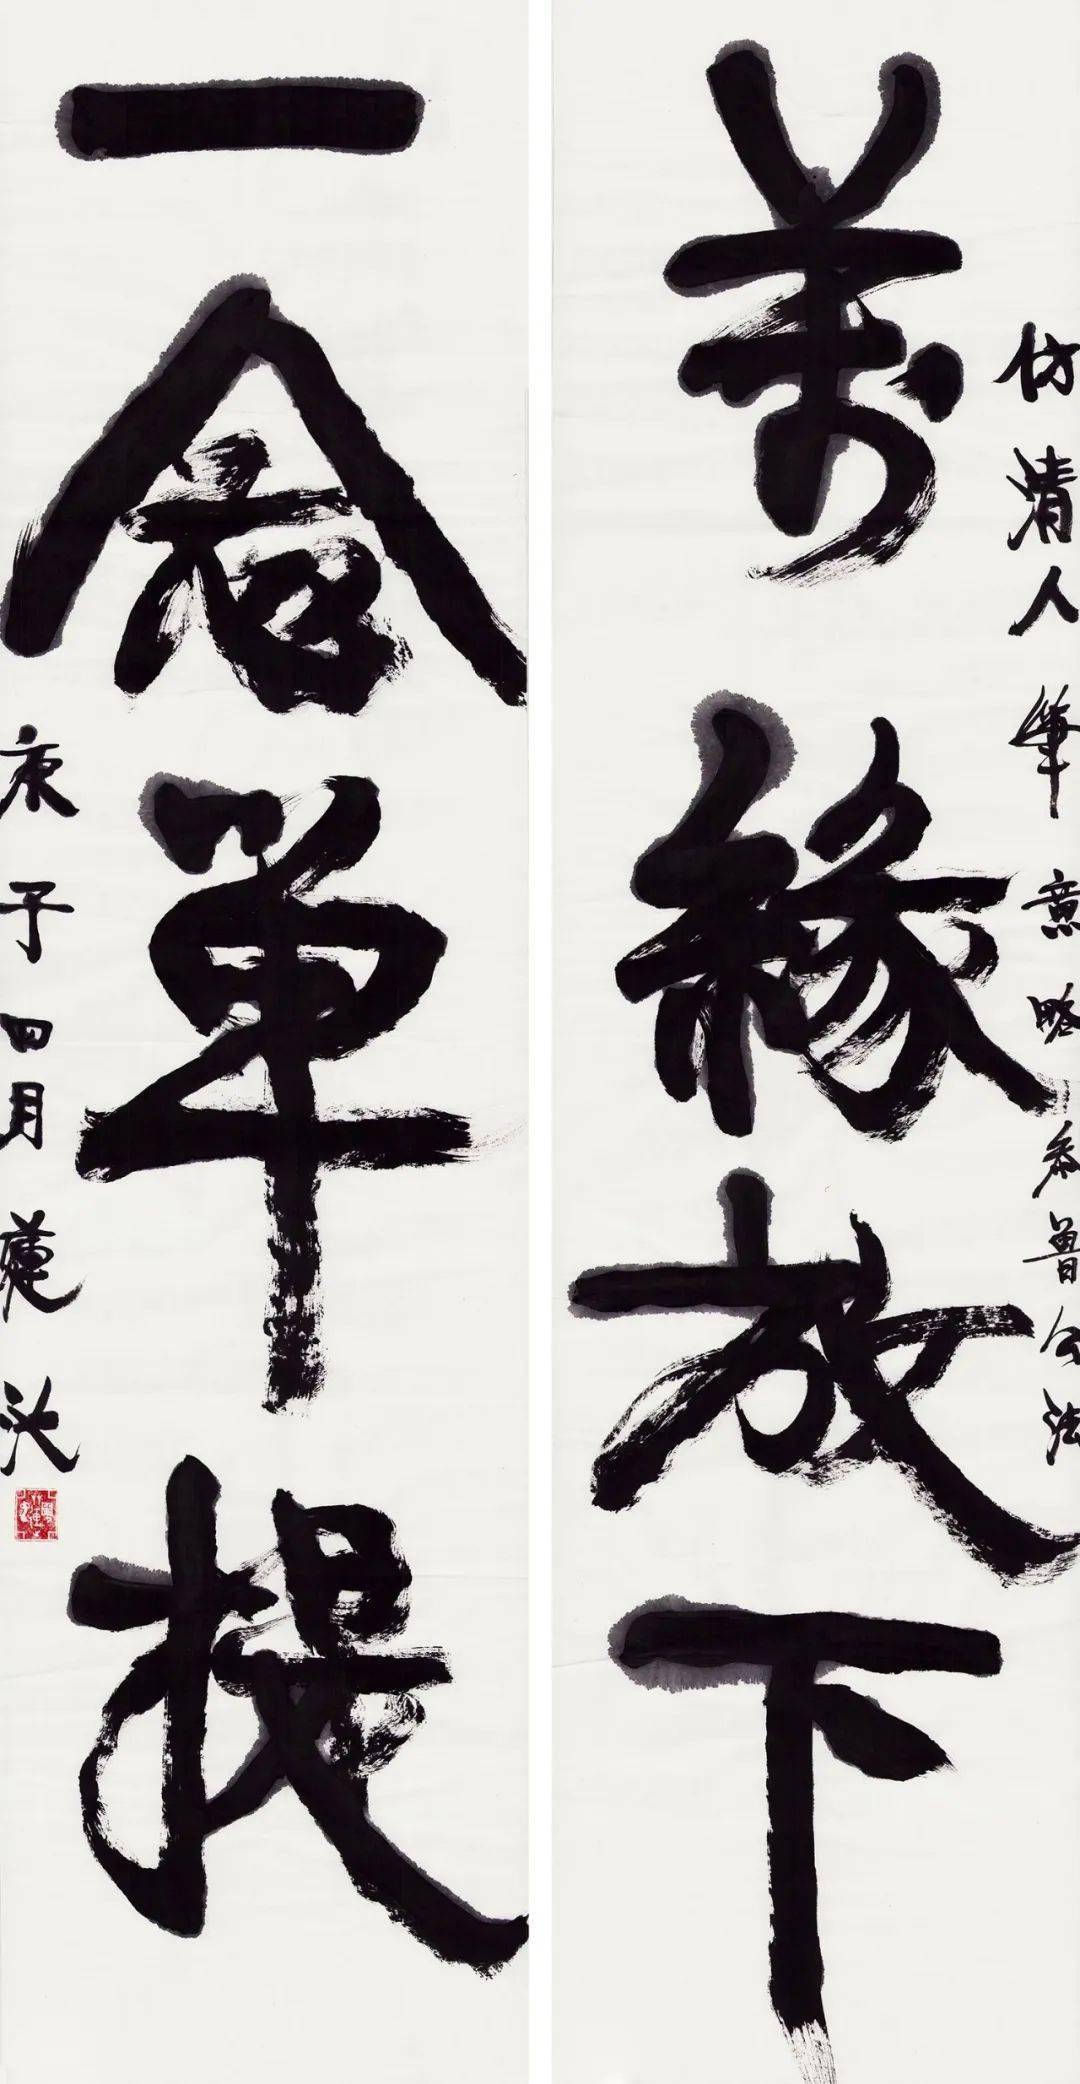 仿清人筆意略參魯公法
萬緣放下
一念單提
庚子四月